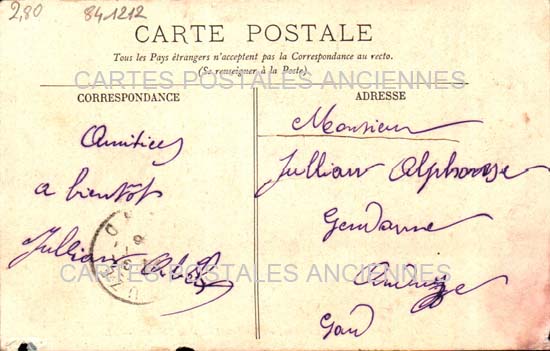 2,80 841212
CARTE POSTALE
Tous les Pays étrangers n'acceptent pas la Correspondance au recto.
(Se renseigner à la Poste).
CARTES POSTALES ANCIENNES
CORRESPONDANCE
Amitiées
a bientôt
Jullian
ADRESSE
Monsieur
Jullian Alphonse
Gendarme
Gard
CARTES POSTALES ANCIENNES